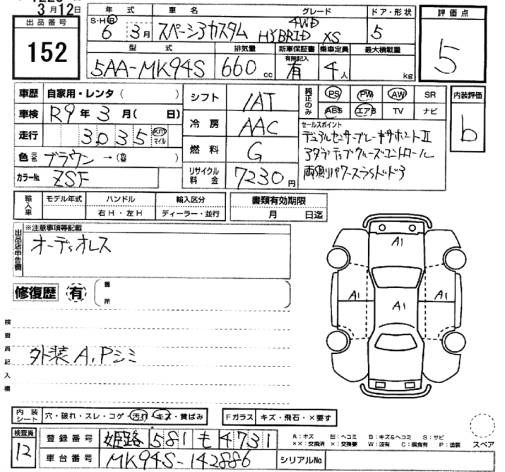 3月12日
出品番号 152
年式 車名 グレード ドア・形状 評価点
S・H・R 6 3月 スペーシアカスタム 4WD HYBRID XS 5 5
型式 排気量 新車保証書 乗車定員 最大積載量
有無記入
5AA-MK94S 660cc 有 4人 kg
車歴 自家用・レンタ( )
車検 R9年3月( 日)
走行 3035 km マイル
色 ブラウン→( )
カラーNo. ZSF
シフト IAT
冷房 AAC
燃料 G
リサイクル料金 7230円
純正のみ PS PW AW SR
ABS エアB TV ナビ
内装評価 b
セールスポイント
デュアルセンサーブレーキサポートⅡ
アダプティブクルーズコントロール
両側パワースライドドア
輸入車 モデル年式 ハンドル 輸入区分 書類有効期限
右H・左H ディーラー・並行 月 日迄
※注意事項等記載
出品店申告欄
オーディオレス
修復歴 有 箇所
検査員記入欄
外装A,Pシミ
A1
A1
A1
A1
内装シート 穴・破れ・スレ・コゲ 汚れ キズ・黄ばみ Fガラス キズ・飛石・×要す
検査員 12
登録番号 姫路 581 も 4731
車台番号 MK94S-142886 シリアルNo.
A:キズ B:ヘコミ B:キズ&ヘコミ S:サビ
××:交換済 ×:要交換 W:波有 C:腐食有 P:塗装
スペア